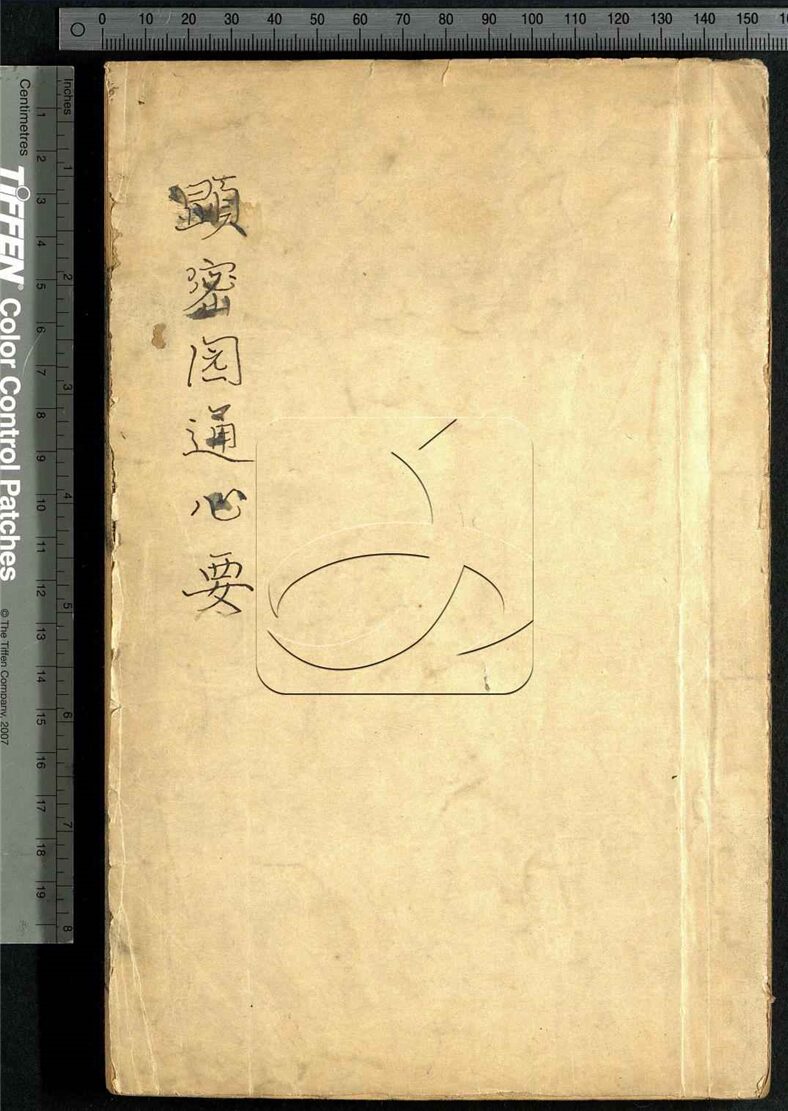 顕密圆通心要
0 10 20 30 40 50 60 70 80 90 100 110 120 130 140 150
Inches
1 2 3 4 5 6 7 8
Centimetres
1 2 3 4 5 6 7 8 9 10 11 12 13 14 15 16 17 18 19
TIFFEN Color Control Patches
© The Tiffen Company, 2007